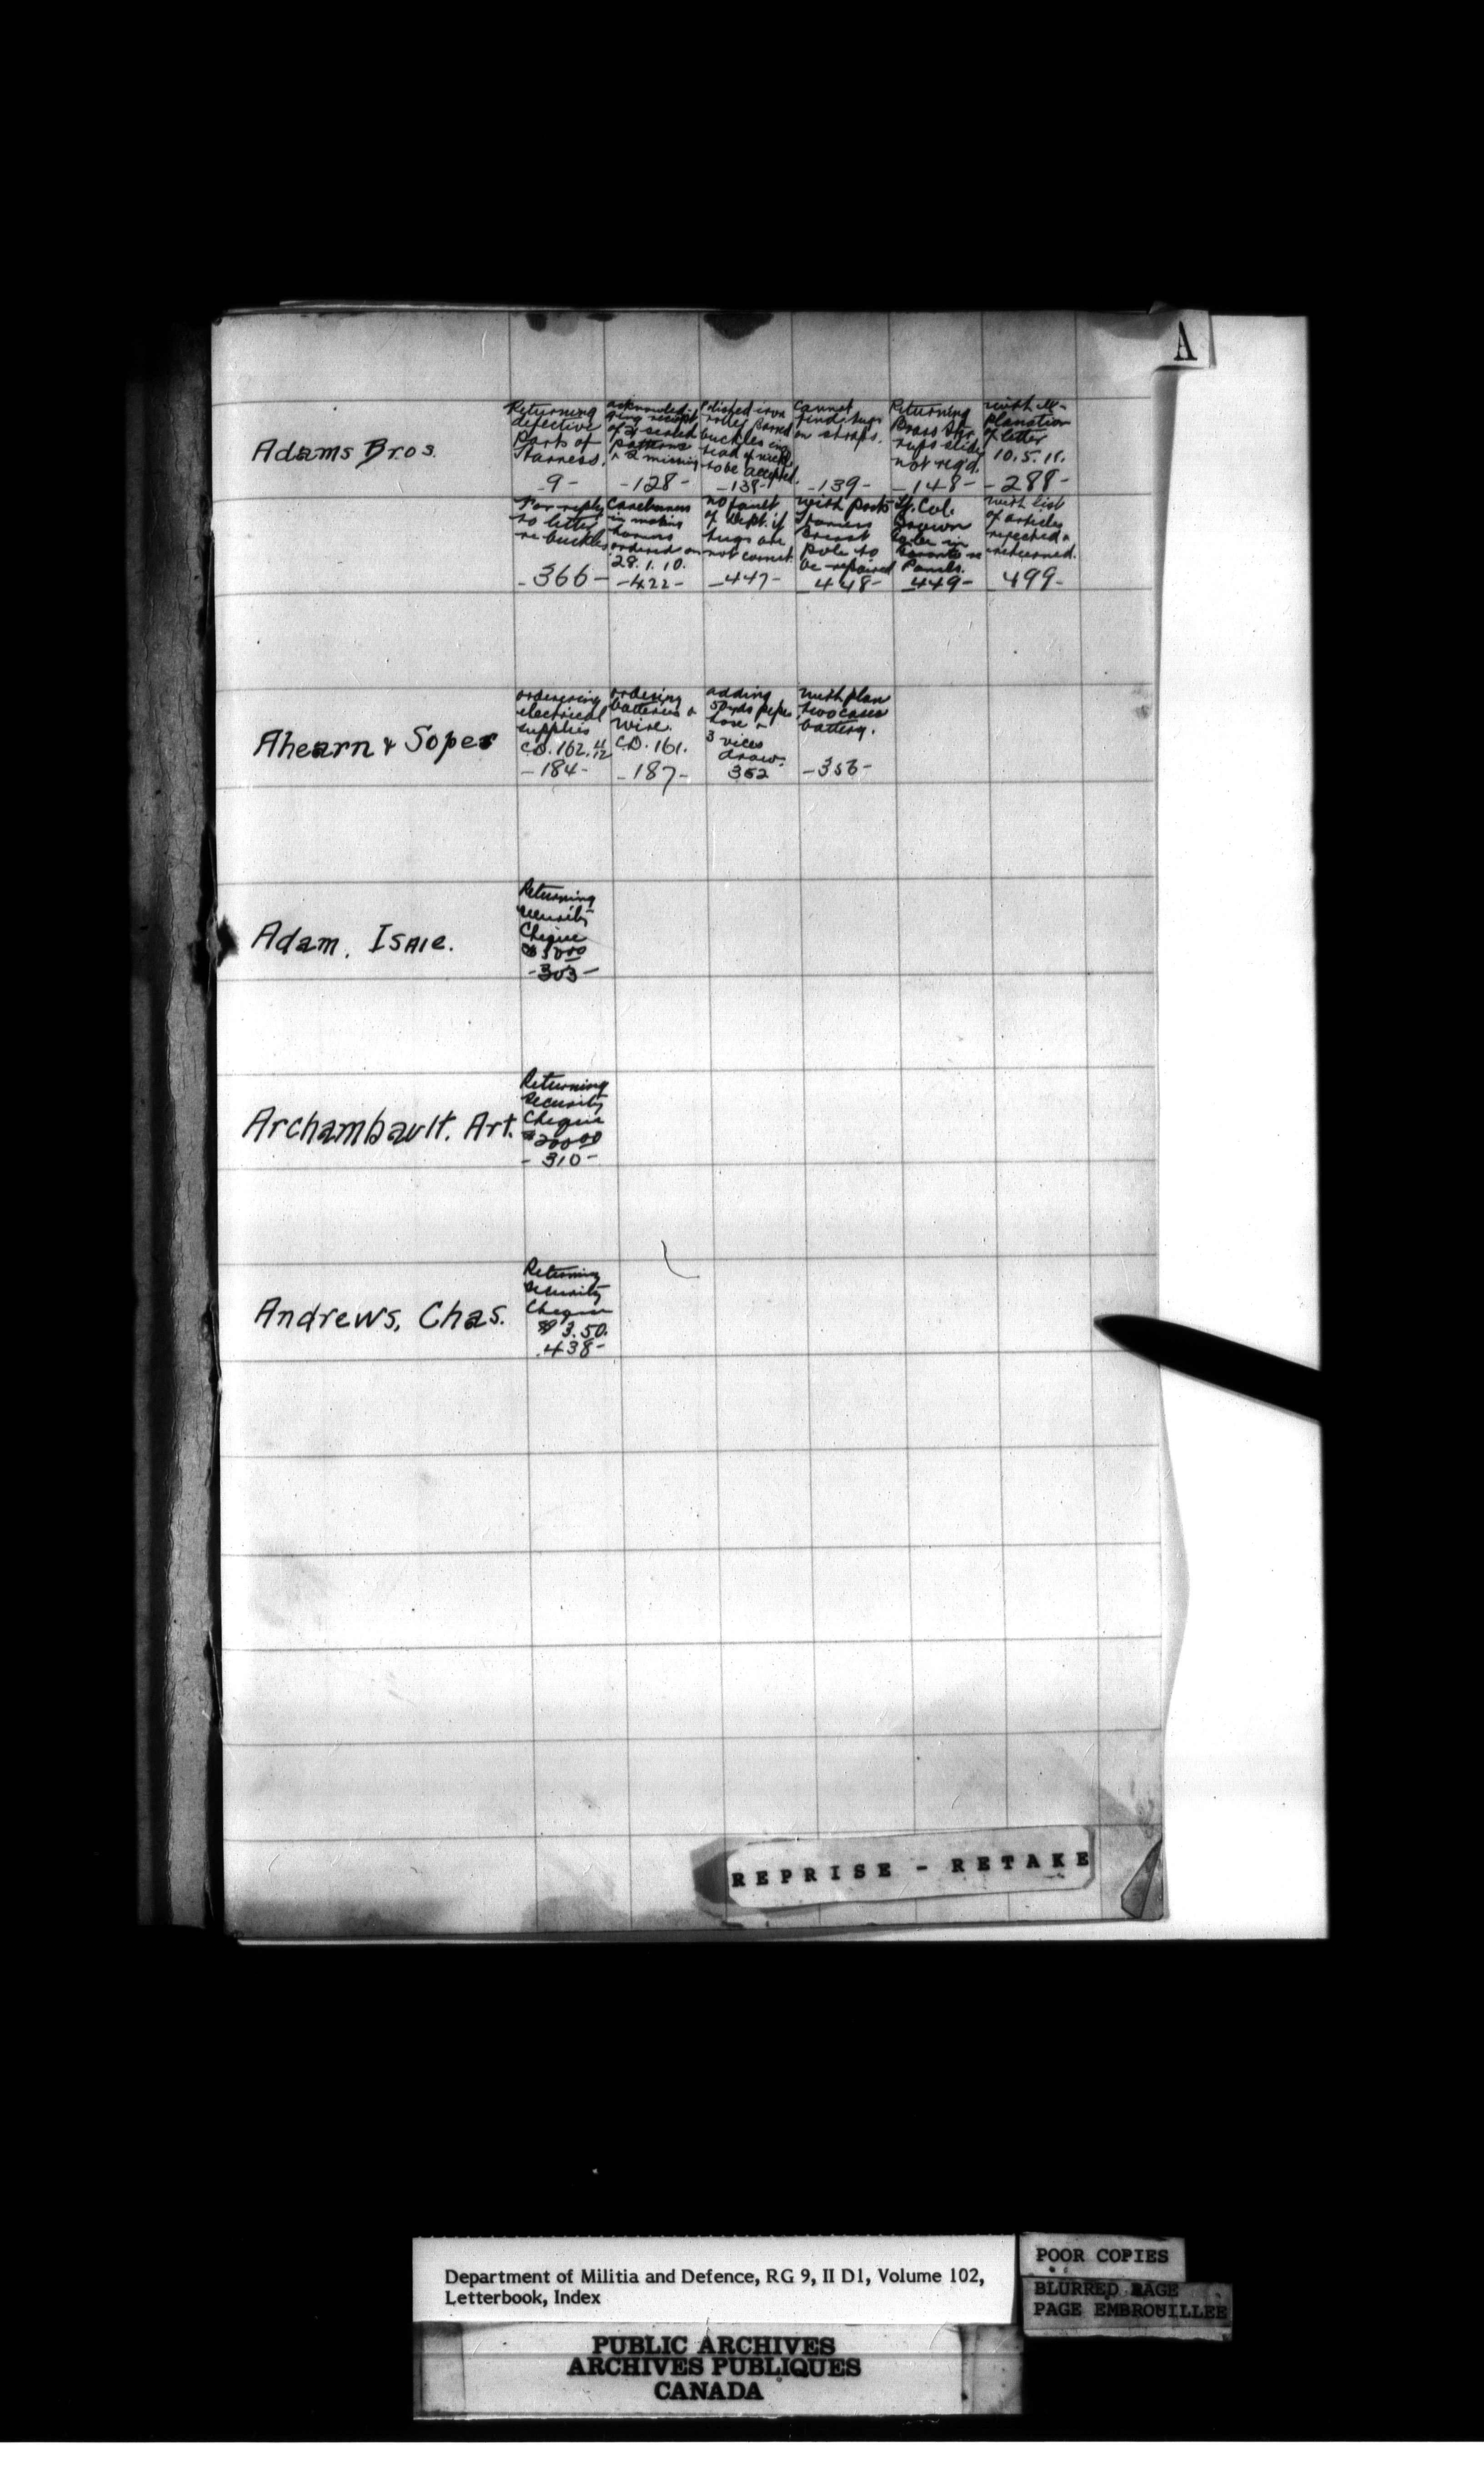 A
Adams Bros.
Returning
defective
Parts of
Harness.
-9-
acknowled-
ging receipt
of 12 sealed
patterns
& 2 missing
-128-
Polished iron
roller Barred
buckles in
stead of nickel
to be accepted.
-138-
Cannot
find tugs
on straps.
-139-
Returning
Brass Stir
rups slide
not req'd.
-148-
with ex-
planation
of letter
10.5.11.
-288-
For reply
to letter
re buckles
-366-
Carelessness
in making
harness
ordered on
28.1.10.
-422-
no fault
of Dept. if
tugs are
not correct
-447-
with parts
Harness
Breast
Pole to
be repaired
-448-
Lt. Col.
Brown
to be in
Toronto re
Panels.
-449-
with list
of articles
rejected &
returned.
-499-
Ahearn & Soper
ordereing
electrical
supplies
C.D. 162.
-184-
ordering
batteries &
wire.
C.D. 161.
-187-
adding
50 yds
hose &
3 vices
draw.
352
with plan
two cases
battery.
-356-
Adam, Isaie.
Returning
security
Cheque
$50.00
-303-
Archambault, Art.
Returning
Security
Cheque
$200.00
-310-
Andrews, Chas.
Returning
security
Cheque
$3.50.
.438-
REPRISE - RETAKE
Department of Militia and Defence, RG 9, II D1, Volume 102,
Letterbook, Index
POOR COPIES
BLURRED PAGE
PAGE EMBROUILLEE
PUBLIC ARCHIVES
ARCHIVES PUBLIQUES
CANADA